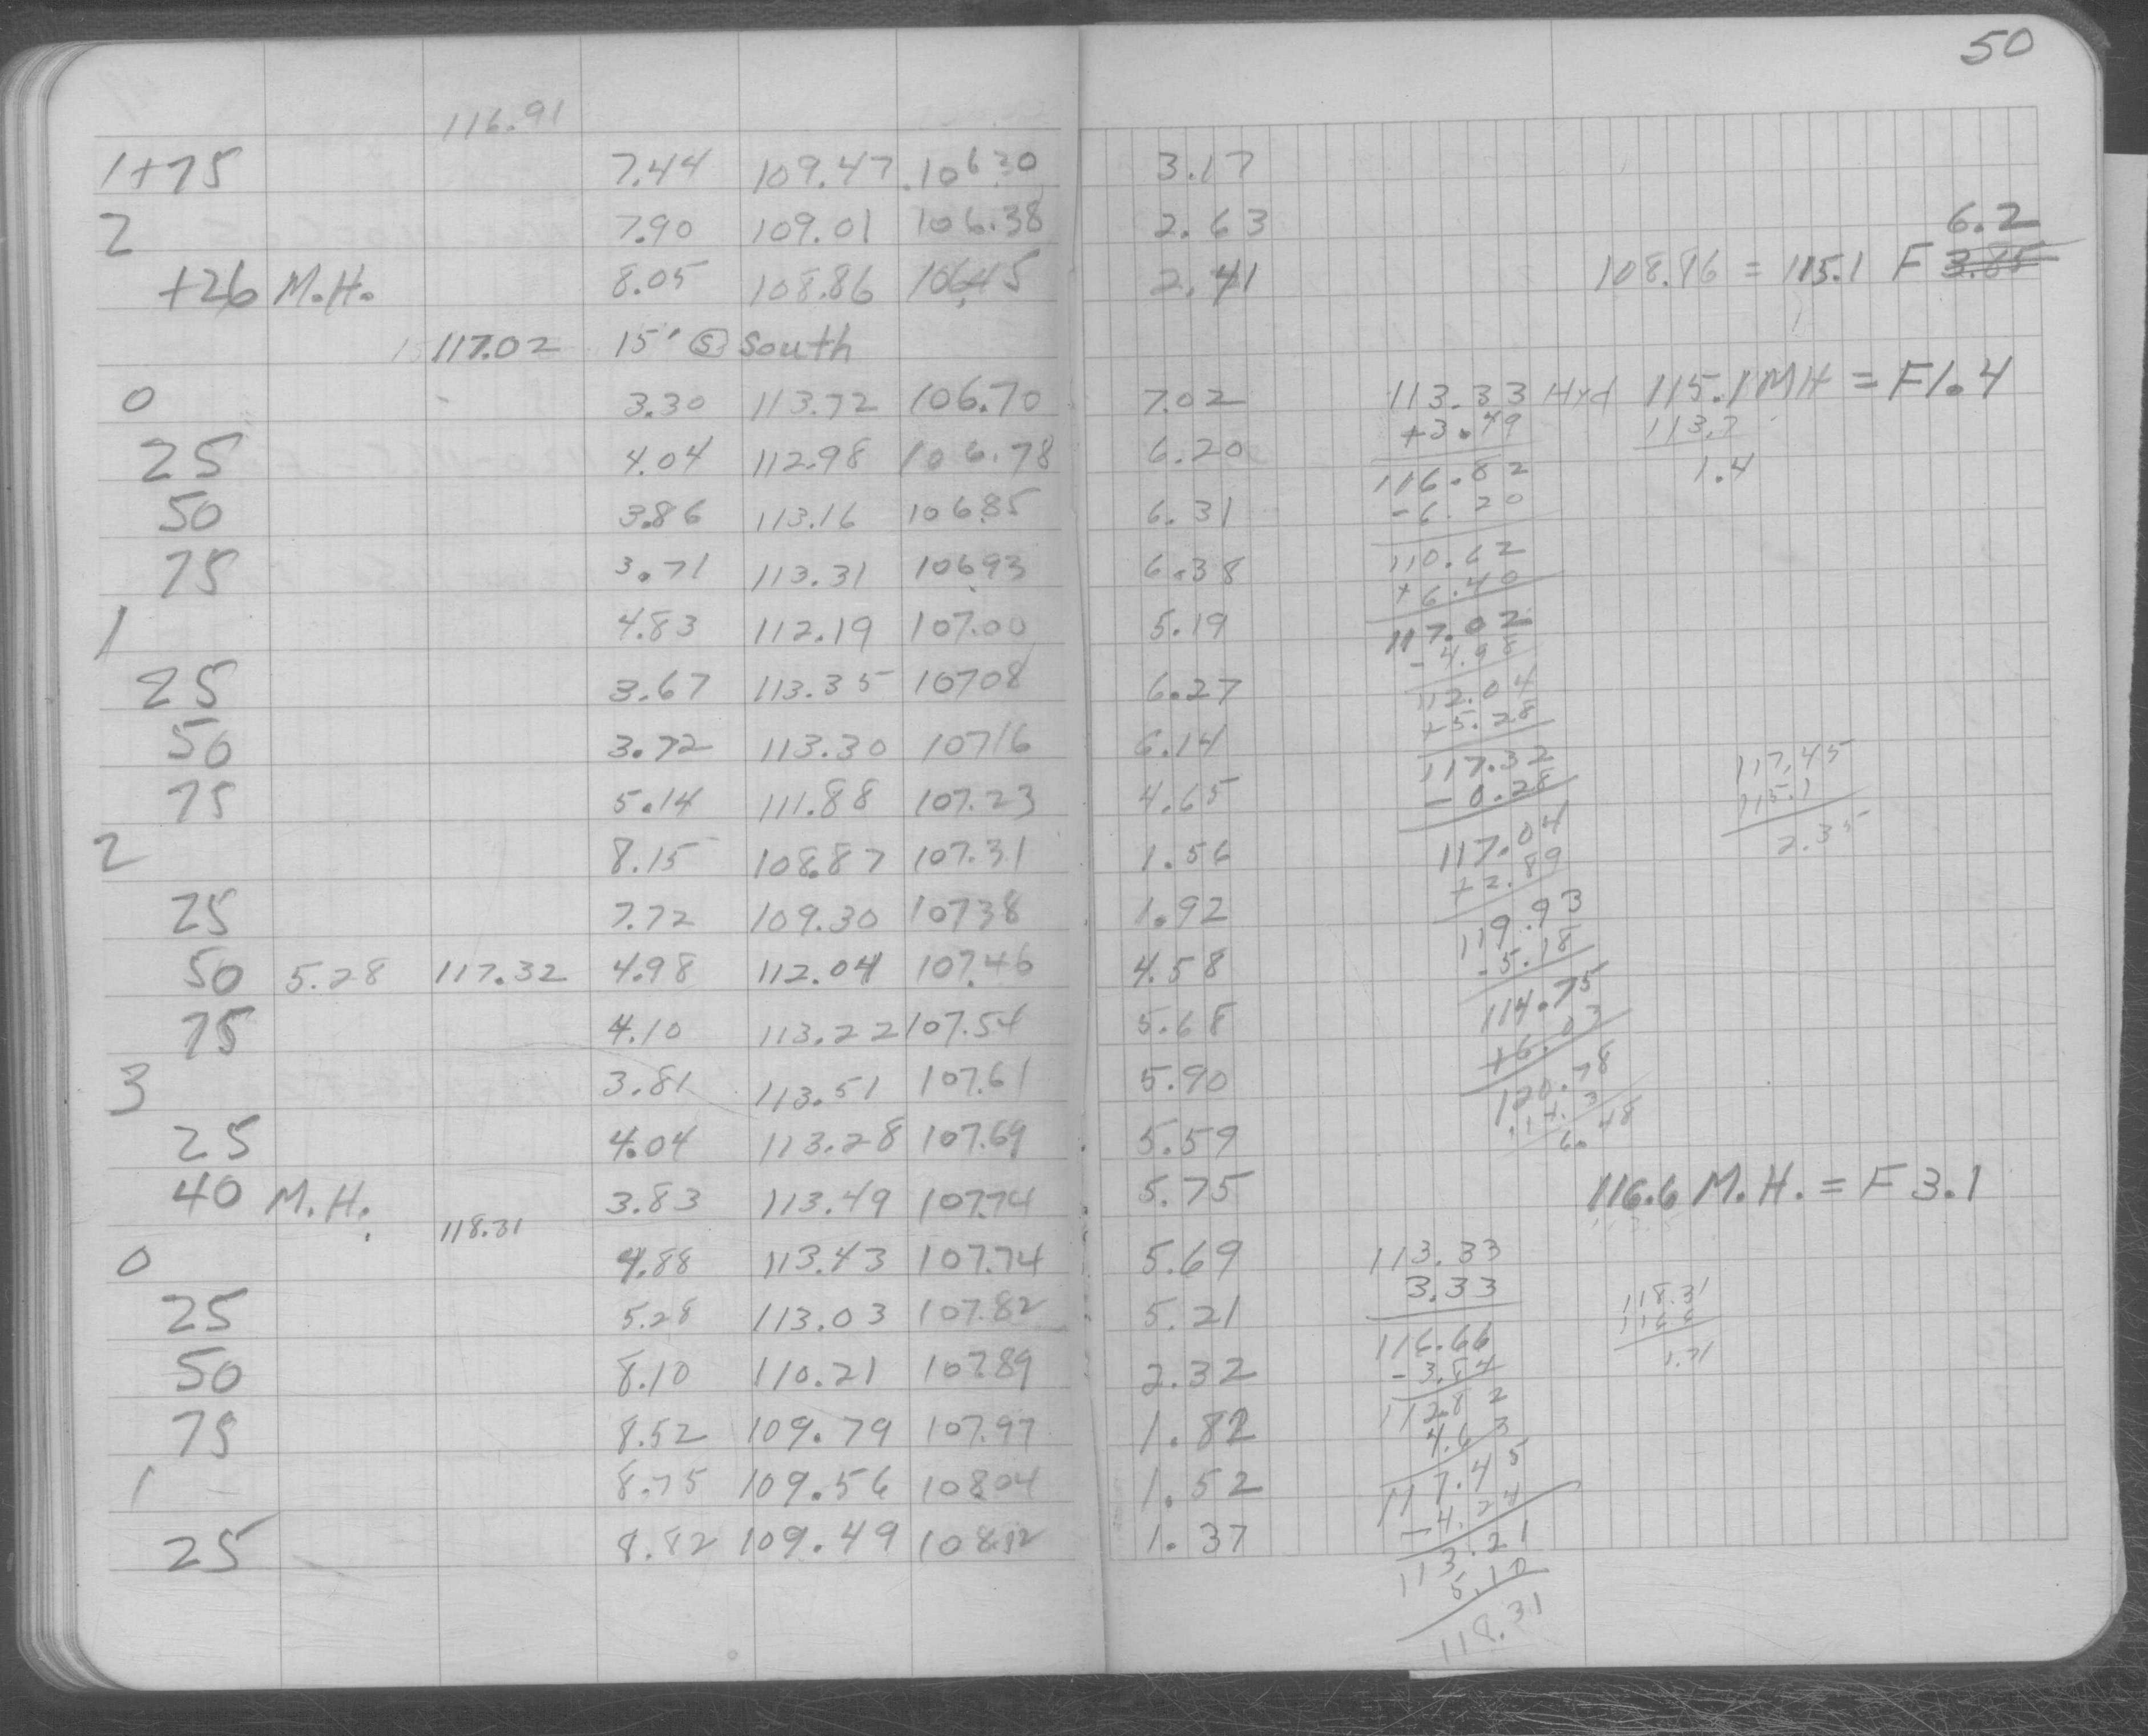 50
116.91
1+75 7.44 109.47 106.30 3.17
2 7.90 109.01 106.38 2.63
6.2
+26 M.H. 8.05 108.86 106.45 2.41 108.86 = 115.1 F 3.85
117.02 15' @ South
0 3.30 113.72 106.70 7.02 113.33 Hyd 115.1 MH = F1.4
+3.49 113.7
25 4.04 112.98 106.78 6.20 116.82 1.4
50 3.86 113.16 106.85 6.31 -6.20
75 3.71 113.31 106.93 6.38 110.62
+6.40
1 4.83 112.19 107.00 5.19 117.02
-4.98
25 3.67 113.35 107.08 6.27 112.04
+5.28
50 3.72 113.30 107.16 6.14 117.32 117.45
75 5.14 111.88 107.23 4.65 -0.28 115.1
2 8.15 108.87 107.31 1.56 117.04 2.35
+2.89
25 7.72 109.30 107.38 1.92 119.93
50 5.28 117.32 4.98 112.04 107.46 4.58 -5.18
75 4.10 113.22 107.54 5.68 114.75
+6.03
3 3.81 113.51 107.61 5.90 120.78
114.3
25 4.04 113.28 107.69 5.59 6.48
40 M.H. 3.83 113.49 107.74 5.75 116.6 M.H. = F 3.1
118.31
0 4.88 113.43 107.74 5.69 113.33
25 5.28 113.03 107.82 5.21 3.33 118.31
116.66 116.6
50 8.10 110.21 107.89 2.32 -3.84 1.71
112.82
75 8.52 109.79 107.97 1.82 4.63
1 8.75 109.56 108.04 1.52 117.45
-4.24
25 8.82 109.49 108.12 1.37 113.21
5.10
118.31